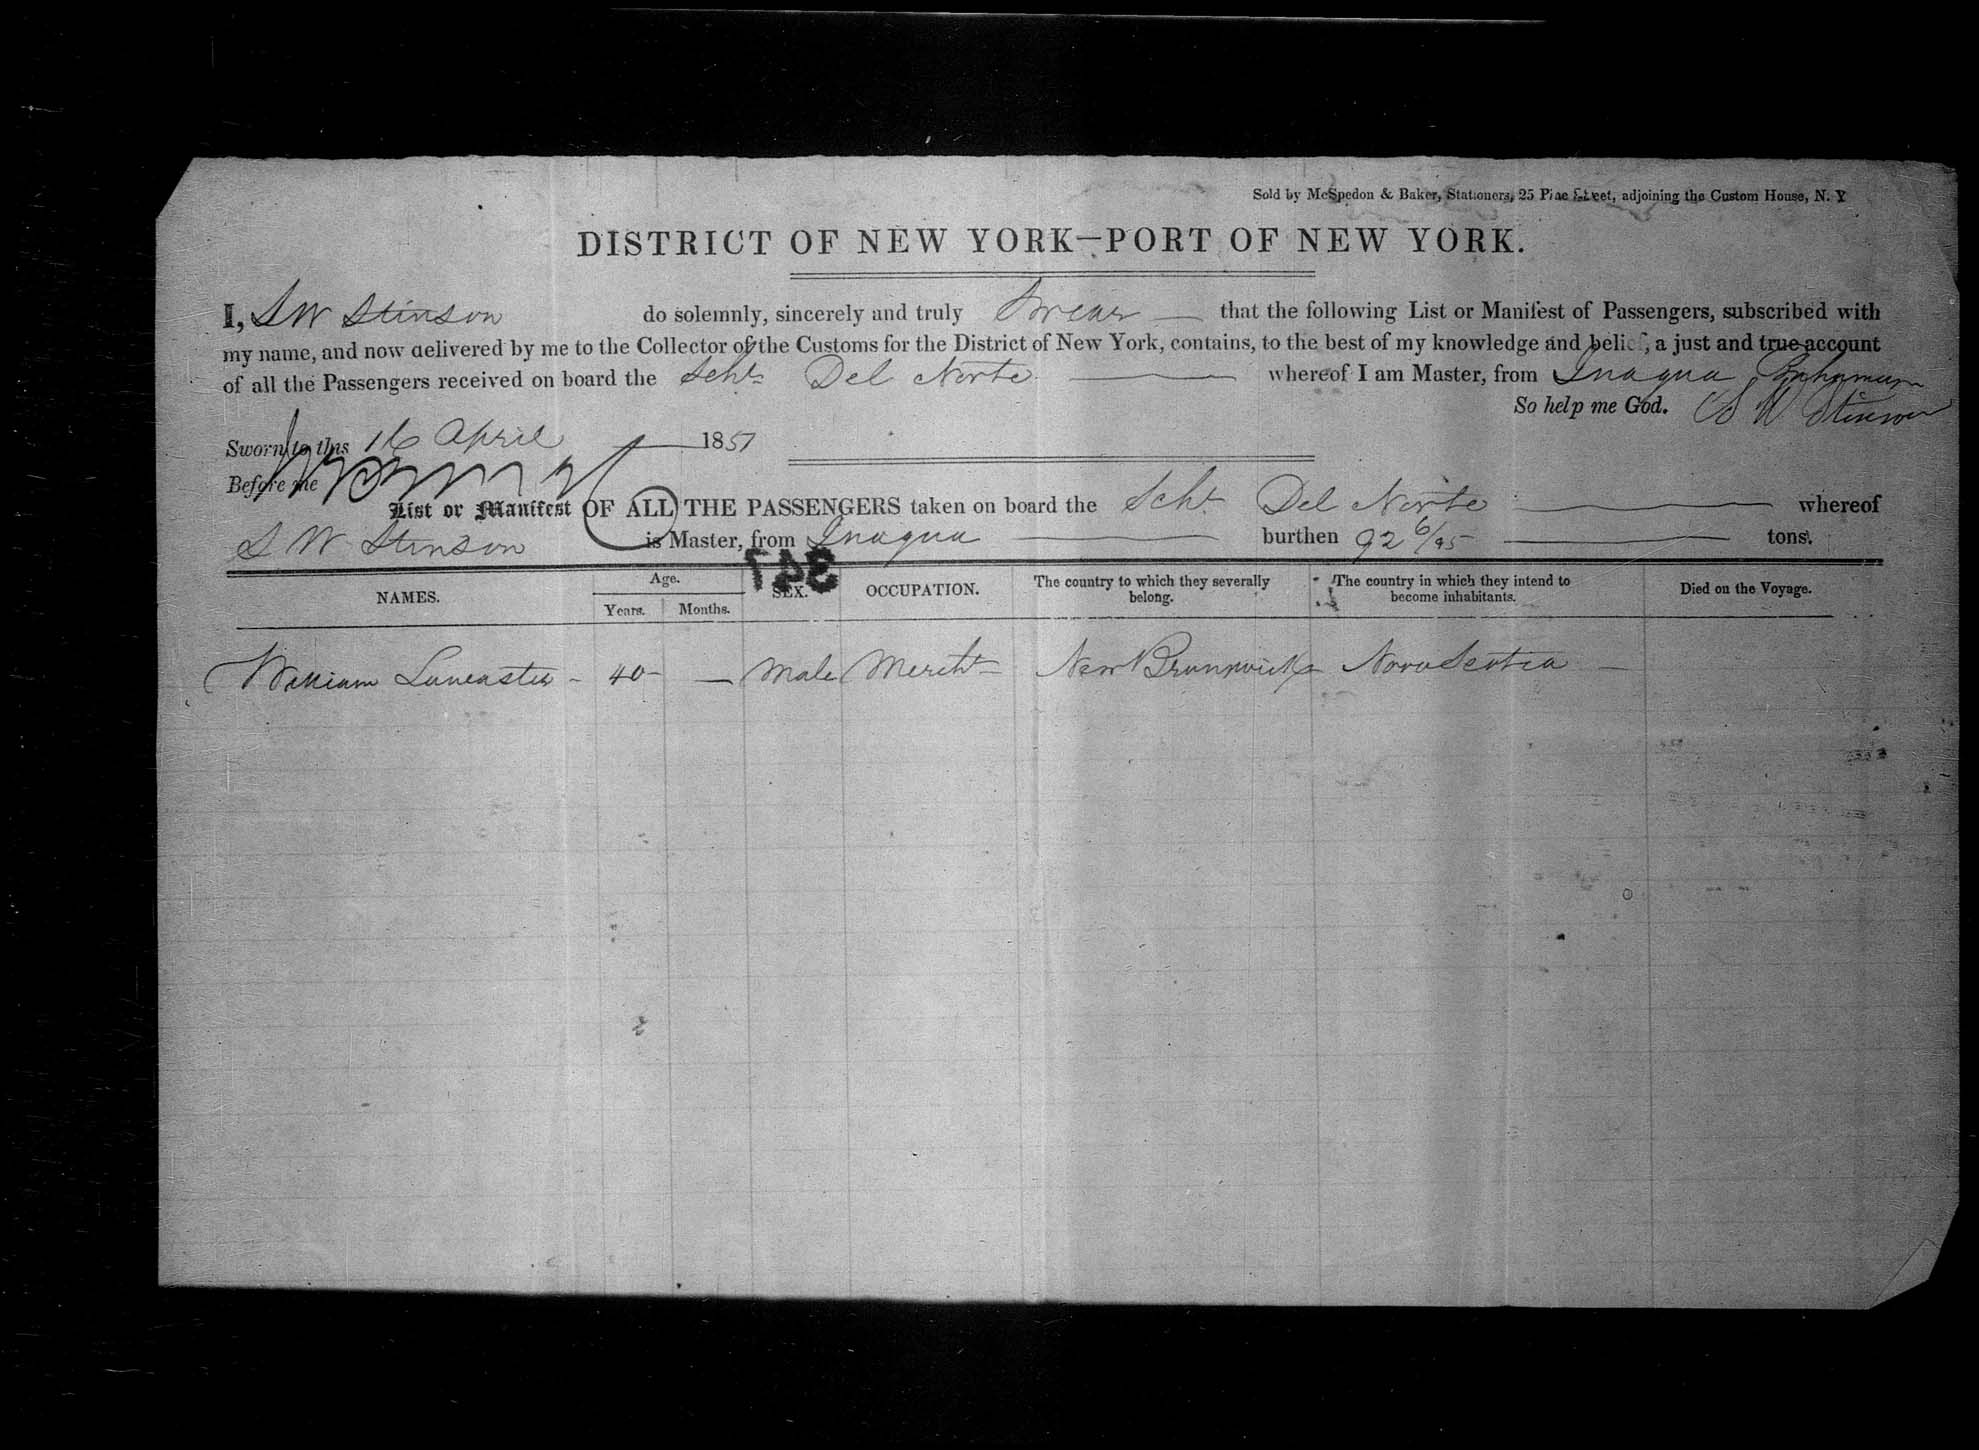 Sold by McSpedon & Baker, Stationers, 25 Pine Street, adjoining the Custom House, N. Y
DISTRICT OF NEW YORK—PORT OF NEW YORK.
I, S W Stinson do solemnly, sincerely and truly Swear — that the following List or Manifest of Passengers, subscribed with
my name, and now delivered by me to the Collector of the Customs for the District of New York, contains, to the best of my knowledge and belief, a just and true account
of all the Passengers received on board the Schr Del Norte — whereof I am Master, from Inagua Bahamas
So help me God. S W Stinson
Sworn to this 16 April — 1851
Before me
List or Manifest OF ALL THE PASSENGERS taken on board the Schr Del Norte — whereof
S W Stinson is Master, from Inagua — burthen 92 6/95 — tons.
347
NAMES. Age. SEX. OCCUPATION. The country to which they severally belong. The country in which they intend to become inhabitants. Died on the Voyage.
Years. Months.
William Lancaster - 40 - — Male Mercht New Brunswick Nova Scotia —